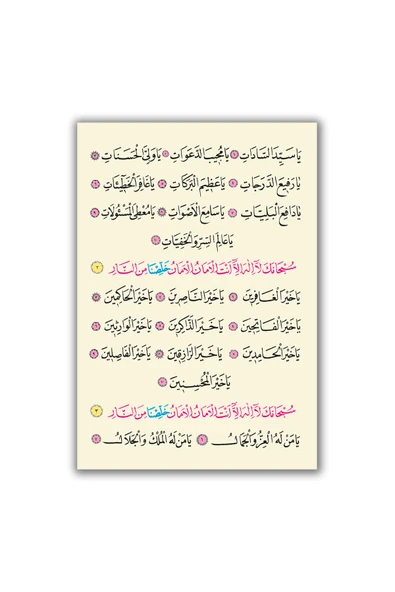 يَا سَيِّدَ السَّادَاتِ ۞ يَا مُجِيبَ الدَّعَوَاتِ ۞ يَا وَلِيَّ الْحَسَنَاتِ ۞
يَا رَفِيعَ الدَّرَجَاتِ ۞ يَا عَظِيمَ الْبَرَكَاتِ ۞ يَا غَافِرَ الْخَطِيئَاتِ ۞
يَا دَافِعَ الْبَلِيَّاتِ ۞ يَا سَامِعَ الْاَصْوَاتِ ۞ يَا مُعْطِيَ الْمَسْئُولَاتِ ۞
يَا عَالِمَ السِّرِّ وَالْخَفِيَّاتِ ۞
سُبْحَانَكَ لَا اِلٰهَ اِلَّا اَنْتَ الْاَمَانُ الْاَمَانُ خَلِّصْنَا مِنَ النَّارِ ٢
يَا خَيْرَ الْغَافِرِينَ ۞ يَا خَيْرَ النَّاصِرِينَ ۞ يَا خَيْرَ الْحَاكِمِينَ ۞
يَا خَيْرَ الْفَاتِحِينَ ۞ يَا خَيْرَ الذَّاكِرِينَ ۞ يَا خَيْرَ الْوَارِثِينَ ۞
يَا خَيْرَ الْحَامِدِينَ ۞ يَا خَيْرَ الرَّازِقِينَ ۞ يَا خَيْرَ الْفَاصِلِينَ ۞
يَا خَيْرَ الْمُحْسِنِينَ ۞
سُبْحَانَكَ لَا اِلٰهَ اِلَّا اَنْتَ الْاَمَانُ الْاَمَانُ خَلِّصْنَا مِنَ النَّارِ ٣
يَا مَنْ لَهُ الْعِزُّ وَالْجَمَالُ ۞ يَا مَنْ لَهُ الْمُلْكُ وَالْجَلَالُ ۞